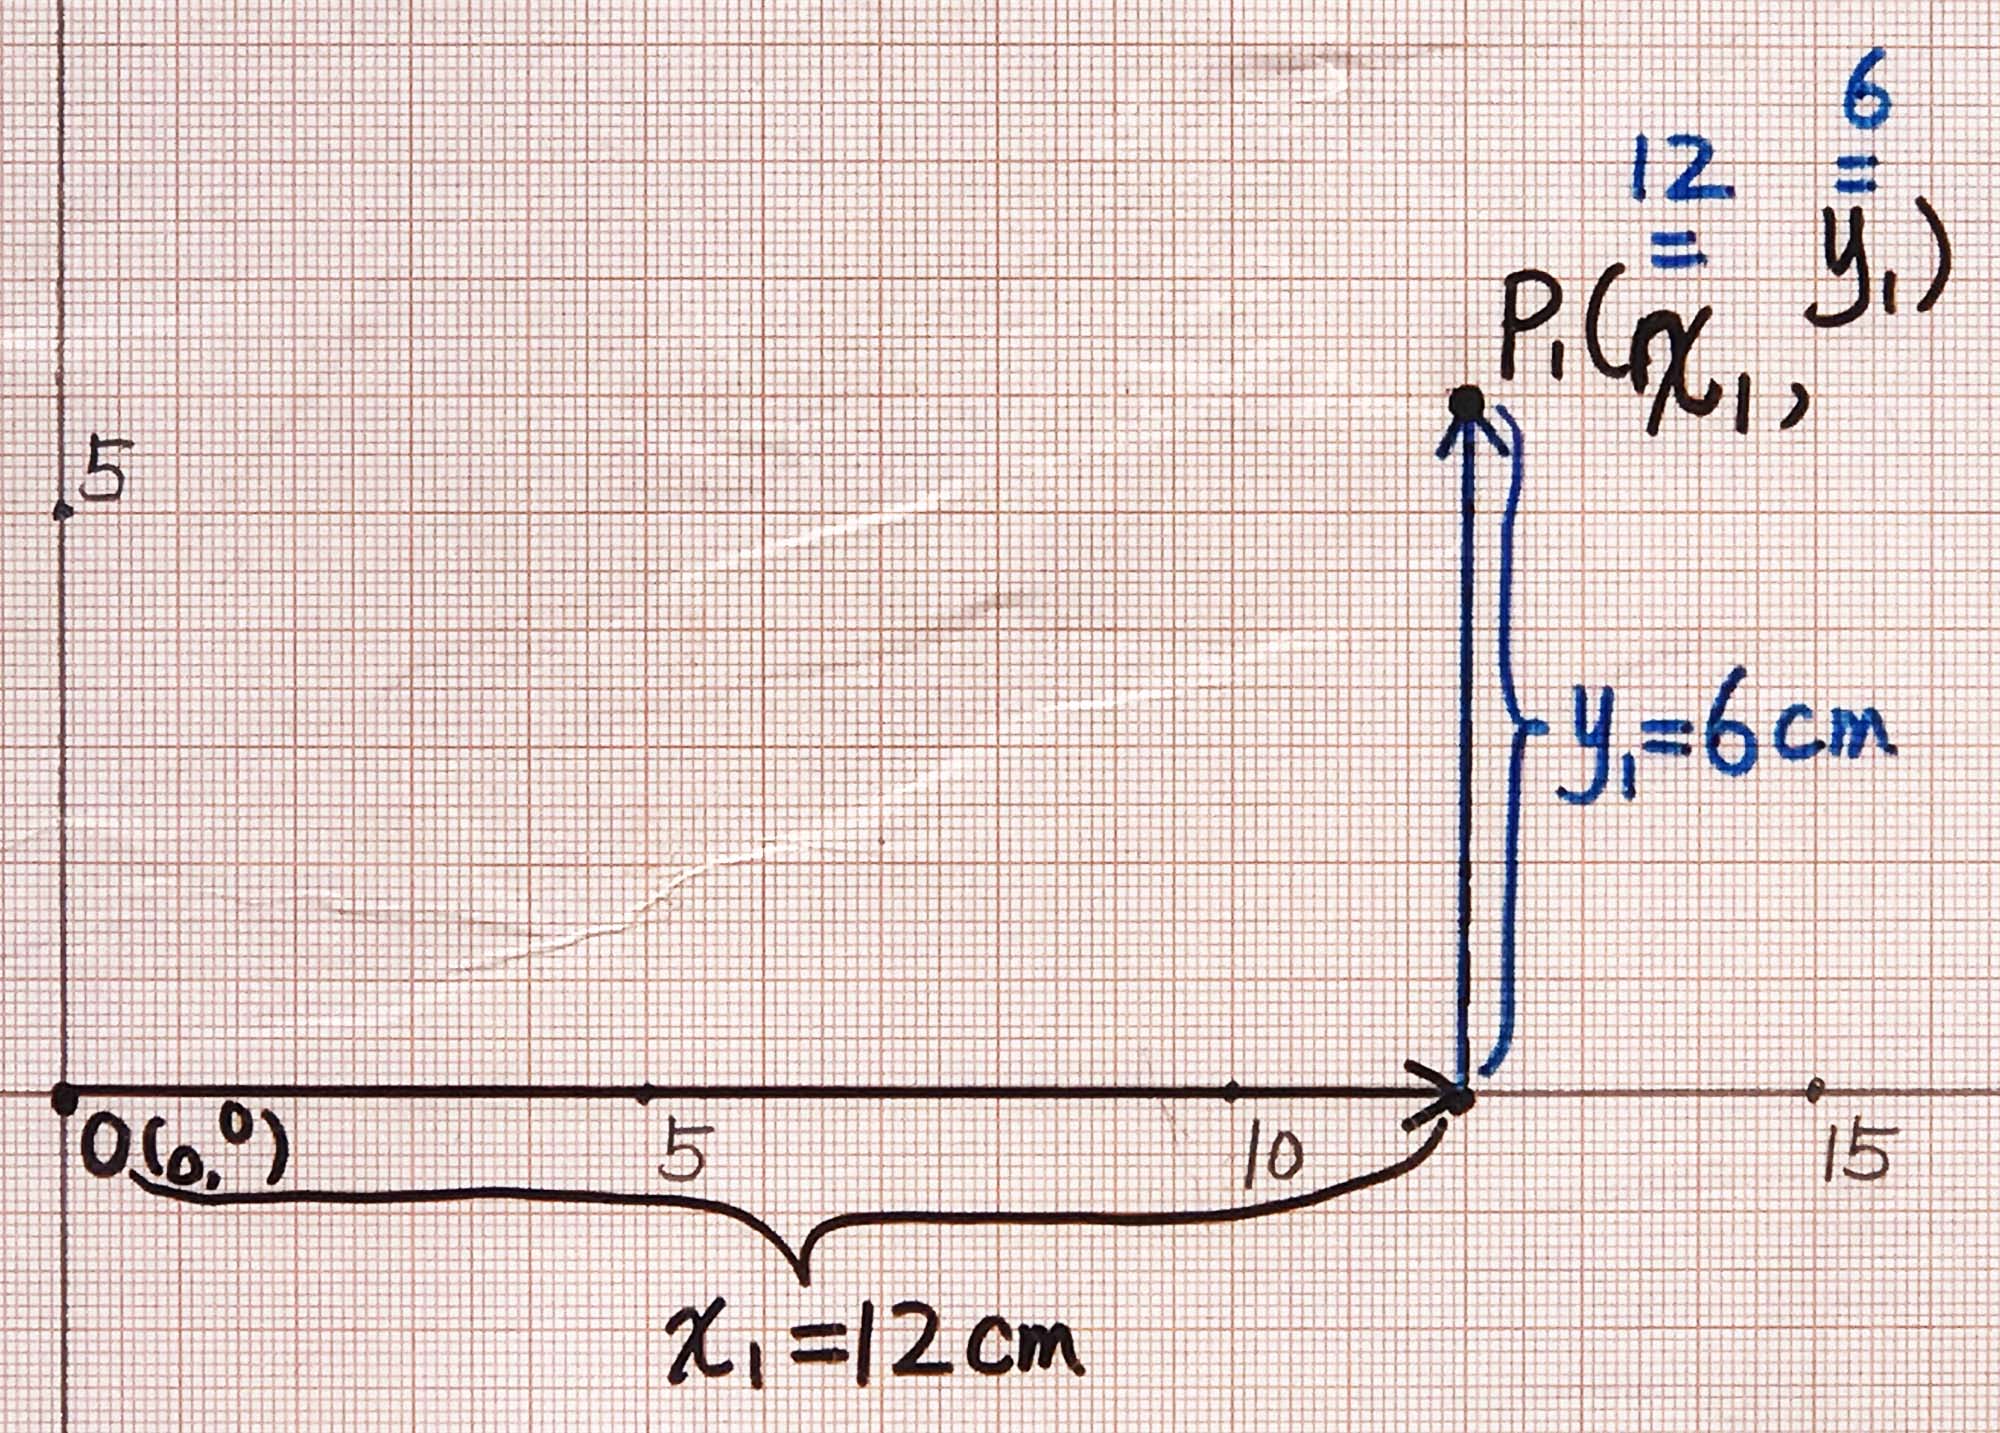 6
12 =
= y₁)
P₁(x₁,
5
y₁=6cm
O(0,0) 5 10 15
x₁=12cm